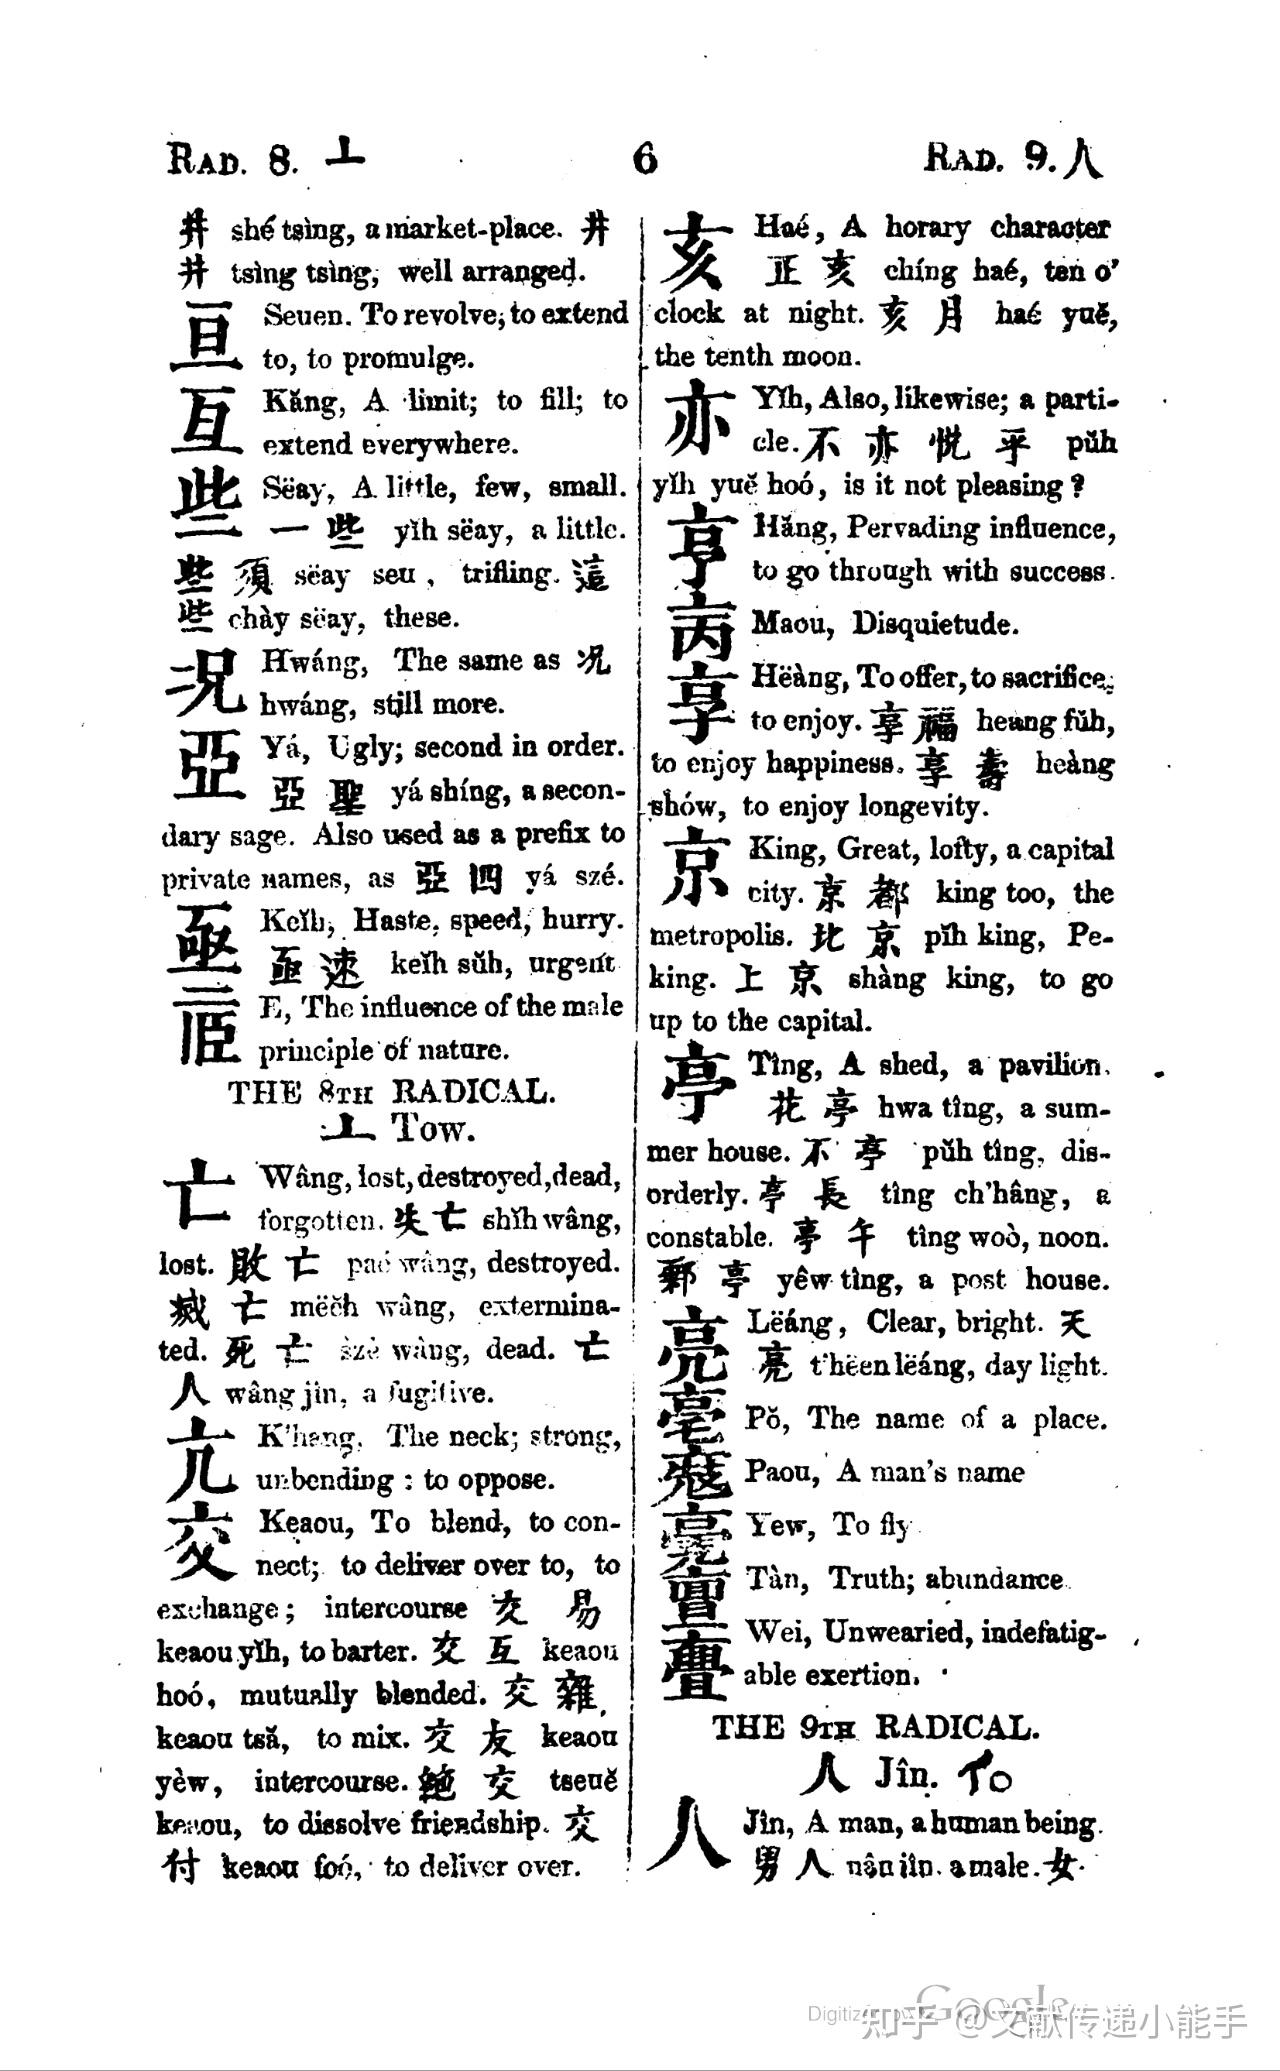 RAD. 8. 亠 6 RAD. 9. 人
井 shé tsìng, a market-place. 井
井 tsìng tsìng, well arranged.
亘 Seuen. To revolve, to extend
to, to promulge.
亙 Kăng, A limit; to fill; to
extend everywhere.
些 Sëay, A little, few, small.
一 些 yĭh sëay, a little.
些 須 sëay seu, trifling. 這
些 chày sëay, these.
Hwáng, The same as 况
hwáng, still more.
亞 Yá, Ugly; second in order.
亞 聖 yá shíng, a secon-
dary sage. Also used as a prefix to
private names, as 亞 四 yá szé.
亟 Keĭh, Haste, speed, hurry.
亟 速 keĭh sŭh, urgent
E, The influence of the male
principle of nature.
THE 8TH RADICAL.
亠 Tow.
亡 Wâng, lost, destroyed, dead,
forgotten. 失 亡 shĭh wâng,
lost. 敗 亡 paé wâng, destroyed.
滅 亡 mëĕh wâng, extermina-
ted. 死 亡 szè wâng, dead. 亡
人 wâng jin, a fugitive.
亢 K'hang, The neck; strong,
unbending: to oppose.
交 Keaou, To blend, to con-
nect; to deliver over to, to
exchange; intercourse 交 易
keaou yĭh, to barter. 交 互 keaou
hoó, mutually blended. 交 雜
keaou tsă, to mix. 交 友 keaou
yèw, intercourse. 絶 交 tseuĕ
keaou, to dissolve friendship. 交
付 keaou foó, to deliver over.
亥 Haé, A horary character
正 亥 chíng haé, ten o'
clock at night. 亥 月 haé yuĕ,
the tenth moon.
亦 Yĭh, Also, likewise; a parti-
cle. 不 亦 悅 乎 pŭh
yĭh yuĕ hoó, is it not pleasing?
亨 Hăng, Pervading influence,
to go through with success.
Maou, Disquietude.
享 Hëàng, To offer, to sacrifice,
to enjoy. 享 福 heang fŭh,
to enjoy happiness. 享 壽 heàng
shów, to enjoy longevity.
京 King, Great, lofty, a capital
city. 京 都 king too, the
metropolis. 北 京 pĭh king, Pe-
king. 上 京 shàng king, to go
up to the capital.
亭 Tîng, A shed, a pavilion.
花 亭 hwa tîng, a sum-
mer house. 不 亭 pŭh tîng, dis-
orderly. 亭 長 tîng ch'hâng, a
constable. 亭 午 tîng woò, noon.
郵 亭 yêw tîng, a post house.
亮 Lëáng, Clear, bright. 天
亮 t'hëen lëáng, day light.
亳 Pŏ, The name of a place.
Paou, A man's name
Yew, To fly.
亶 Tàn, Truth; abundance
亹 Wei, Unwearied, indefatig-
able exertion.
THE 9TH RADICAL.
人 Jîn. 亻
人 Jîn, A man, a human being.
男 人 nân jîn. a male. 女
Digitized by Google
知乎 @文献传递小能手